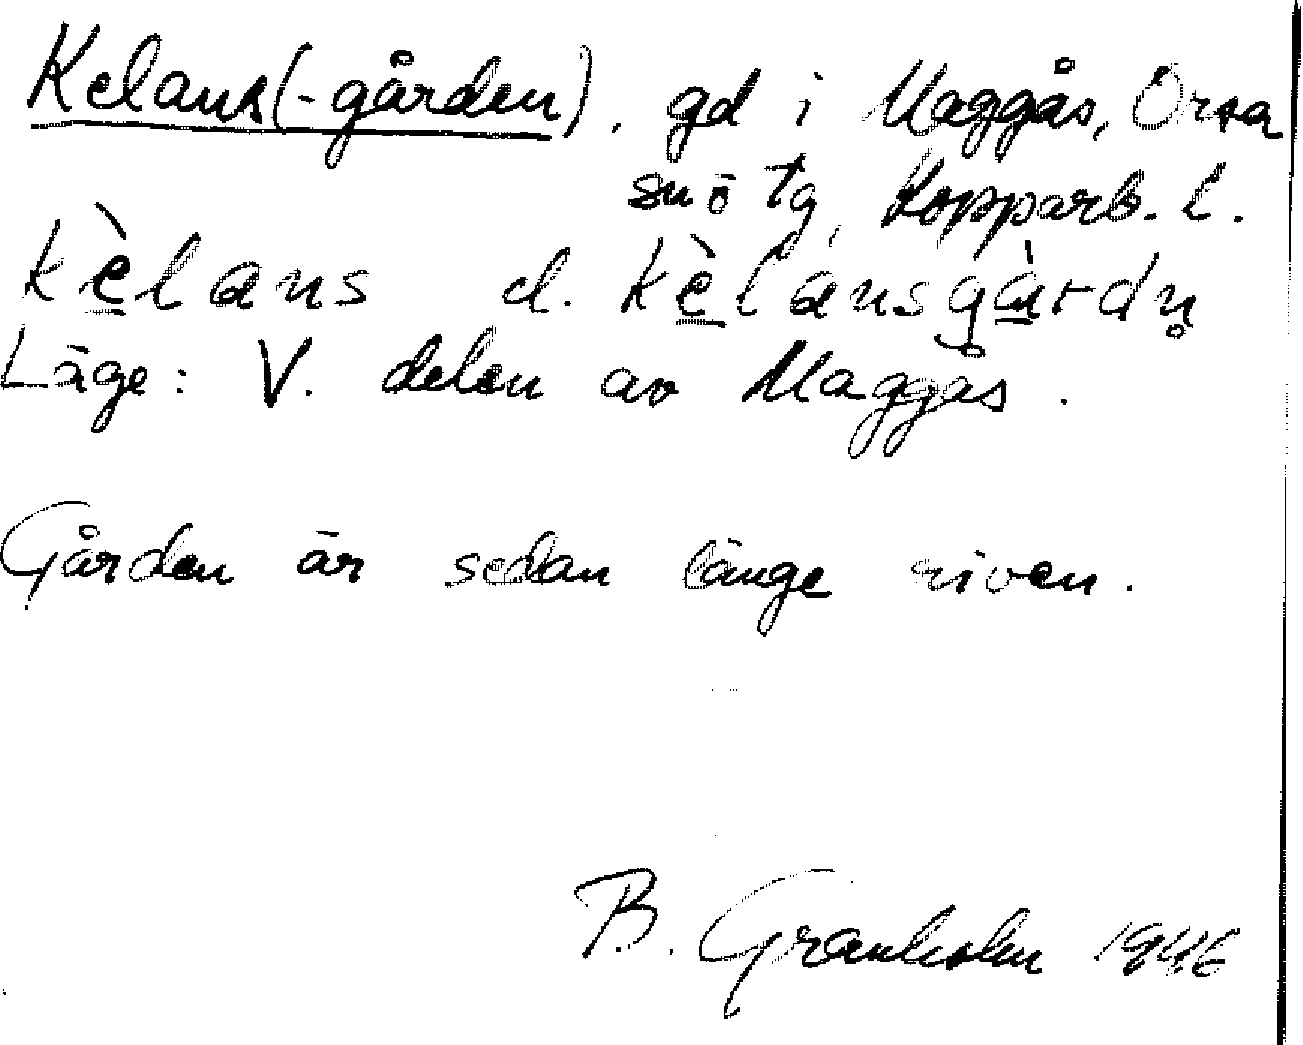 Kelans(-gården), gd i Maggås, Orsa
sn ö tg, Kopparb. l.
kèlans el. kèlansgàrdn̥
Läge: V. delen av Maggås.
Gården är sedan länge riven.
B. Granholm 1946